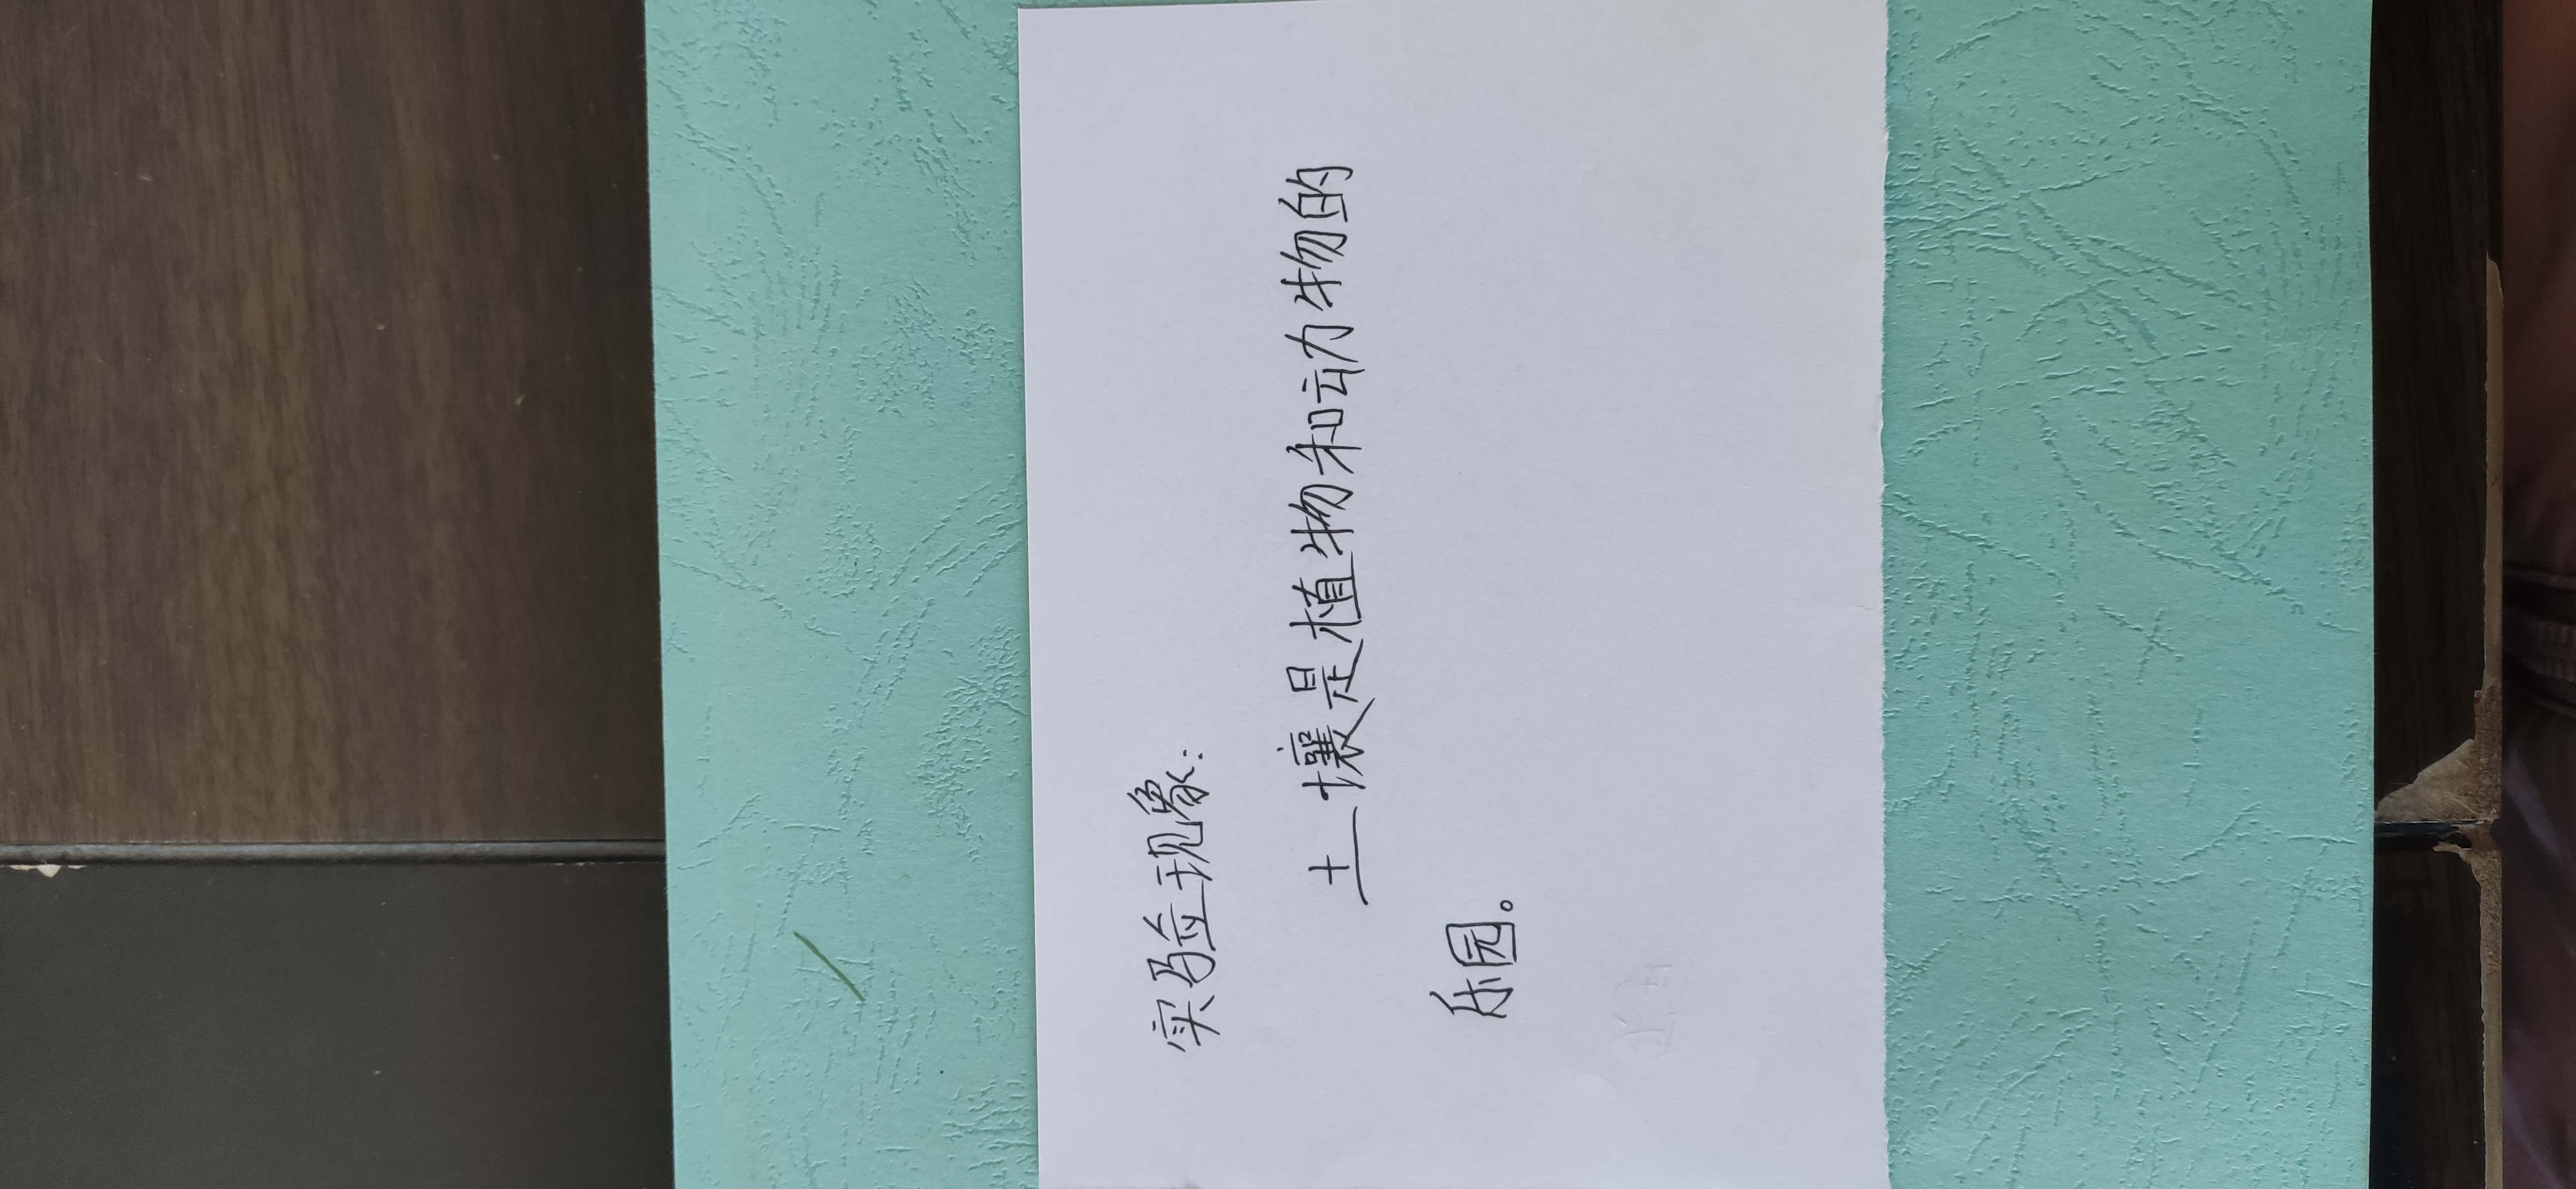 实验现象:
土壤是植物和动物的
乐园。